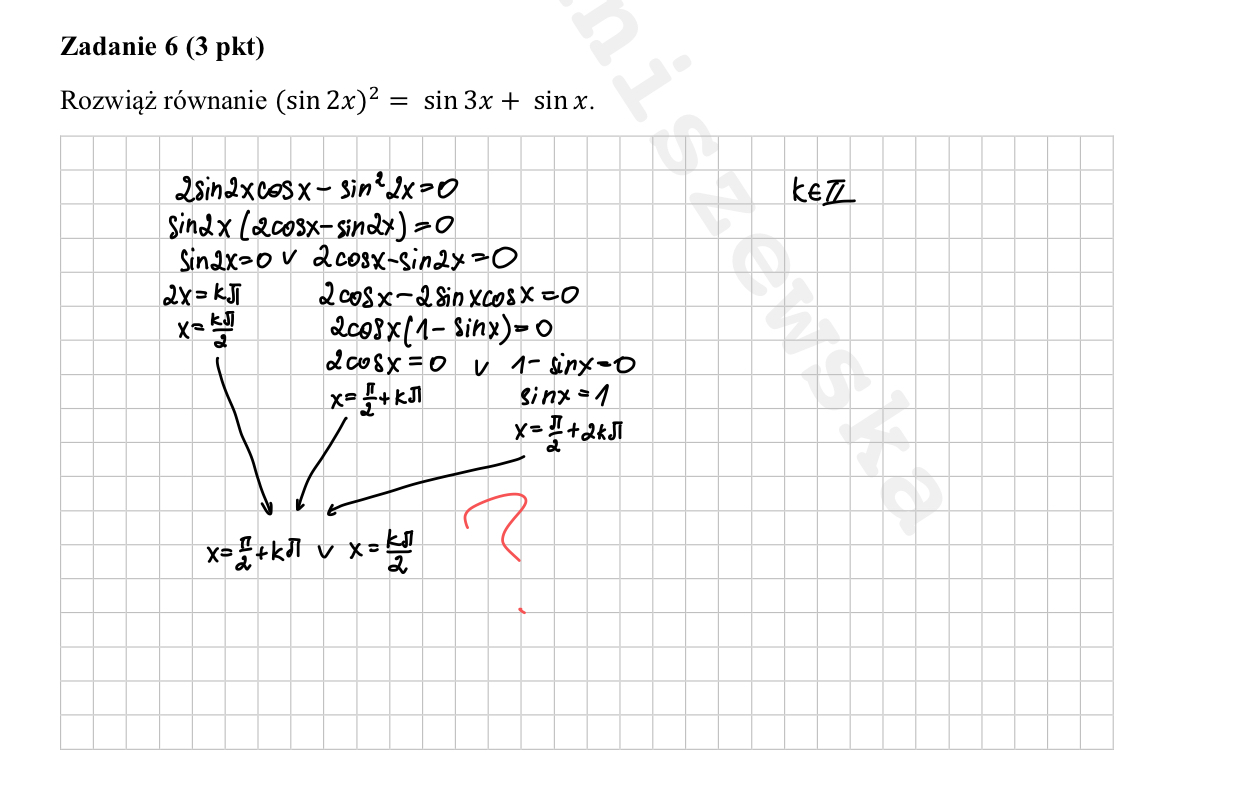 Zadanie 6 (3 pkt)
Rozwiąż równanie (sin 2x)² = sin 3x + sin x.
2sin2xcosx - sin²2x=0
k∈ℤ
sin2x(2cosx-sin2x)=0
sin2x=0 ∨ 2cosx-sin2x=0
2x=kπ 2cosx-2sinxcosx=0
x=kπ/2 2cosx(1-sinx)=0
2cosx=0 ∨ 1-sinx=0
x=π/2+kπ sinx=1
x=π/2+2kπ
?
x=π/2+kπ ∨ x=kπ/2
niszewska